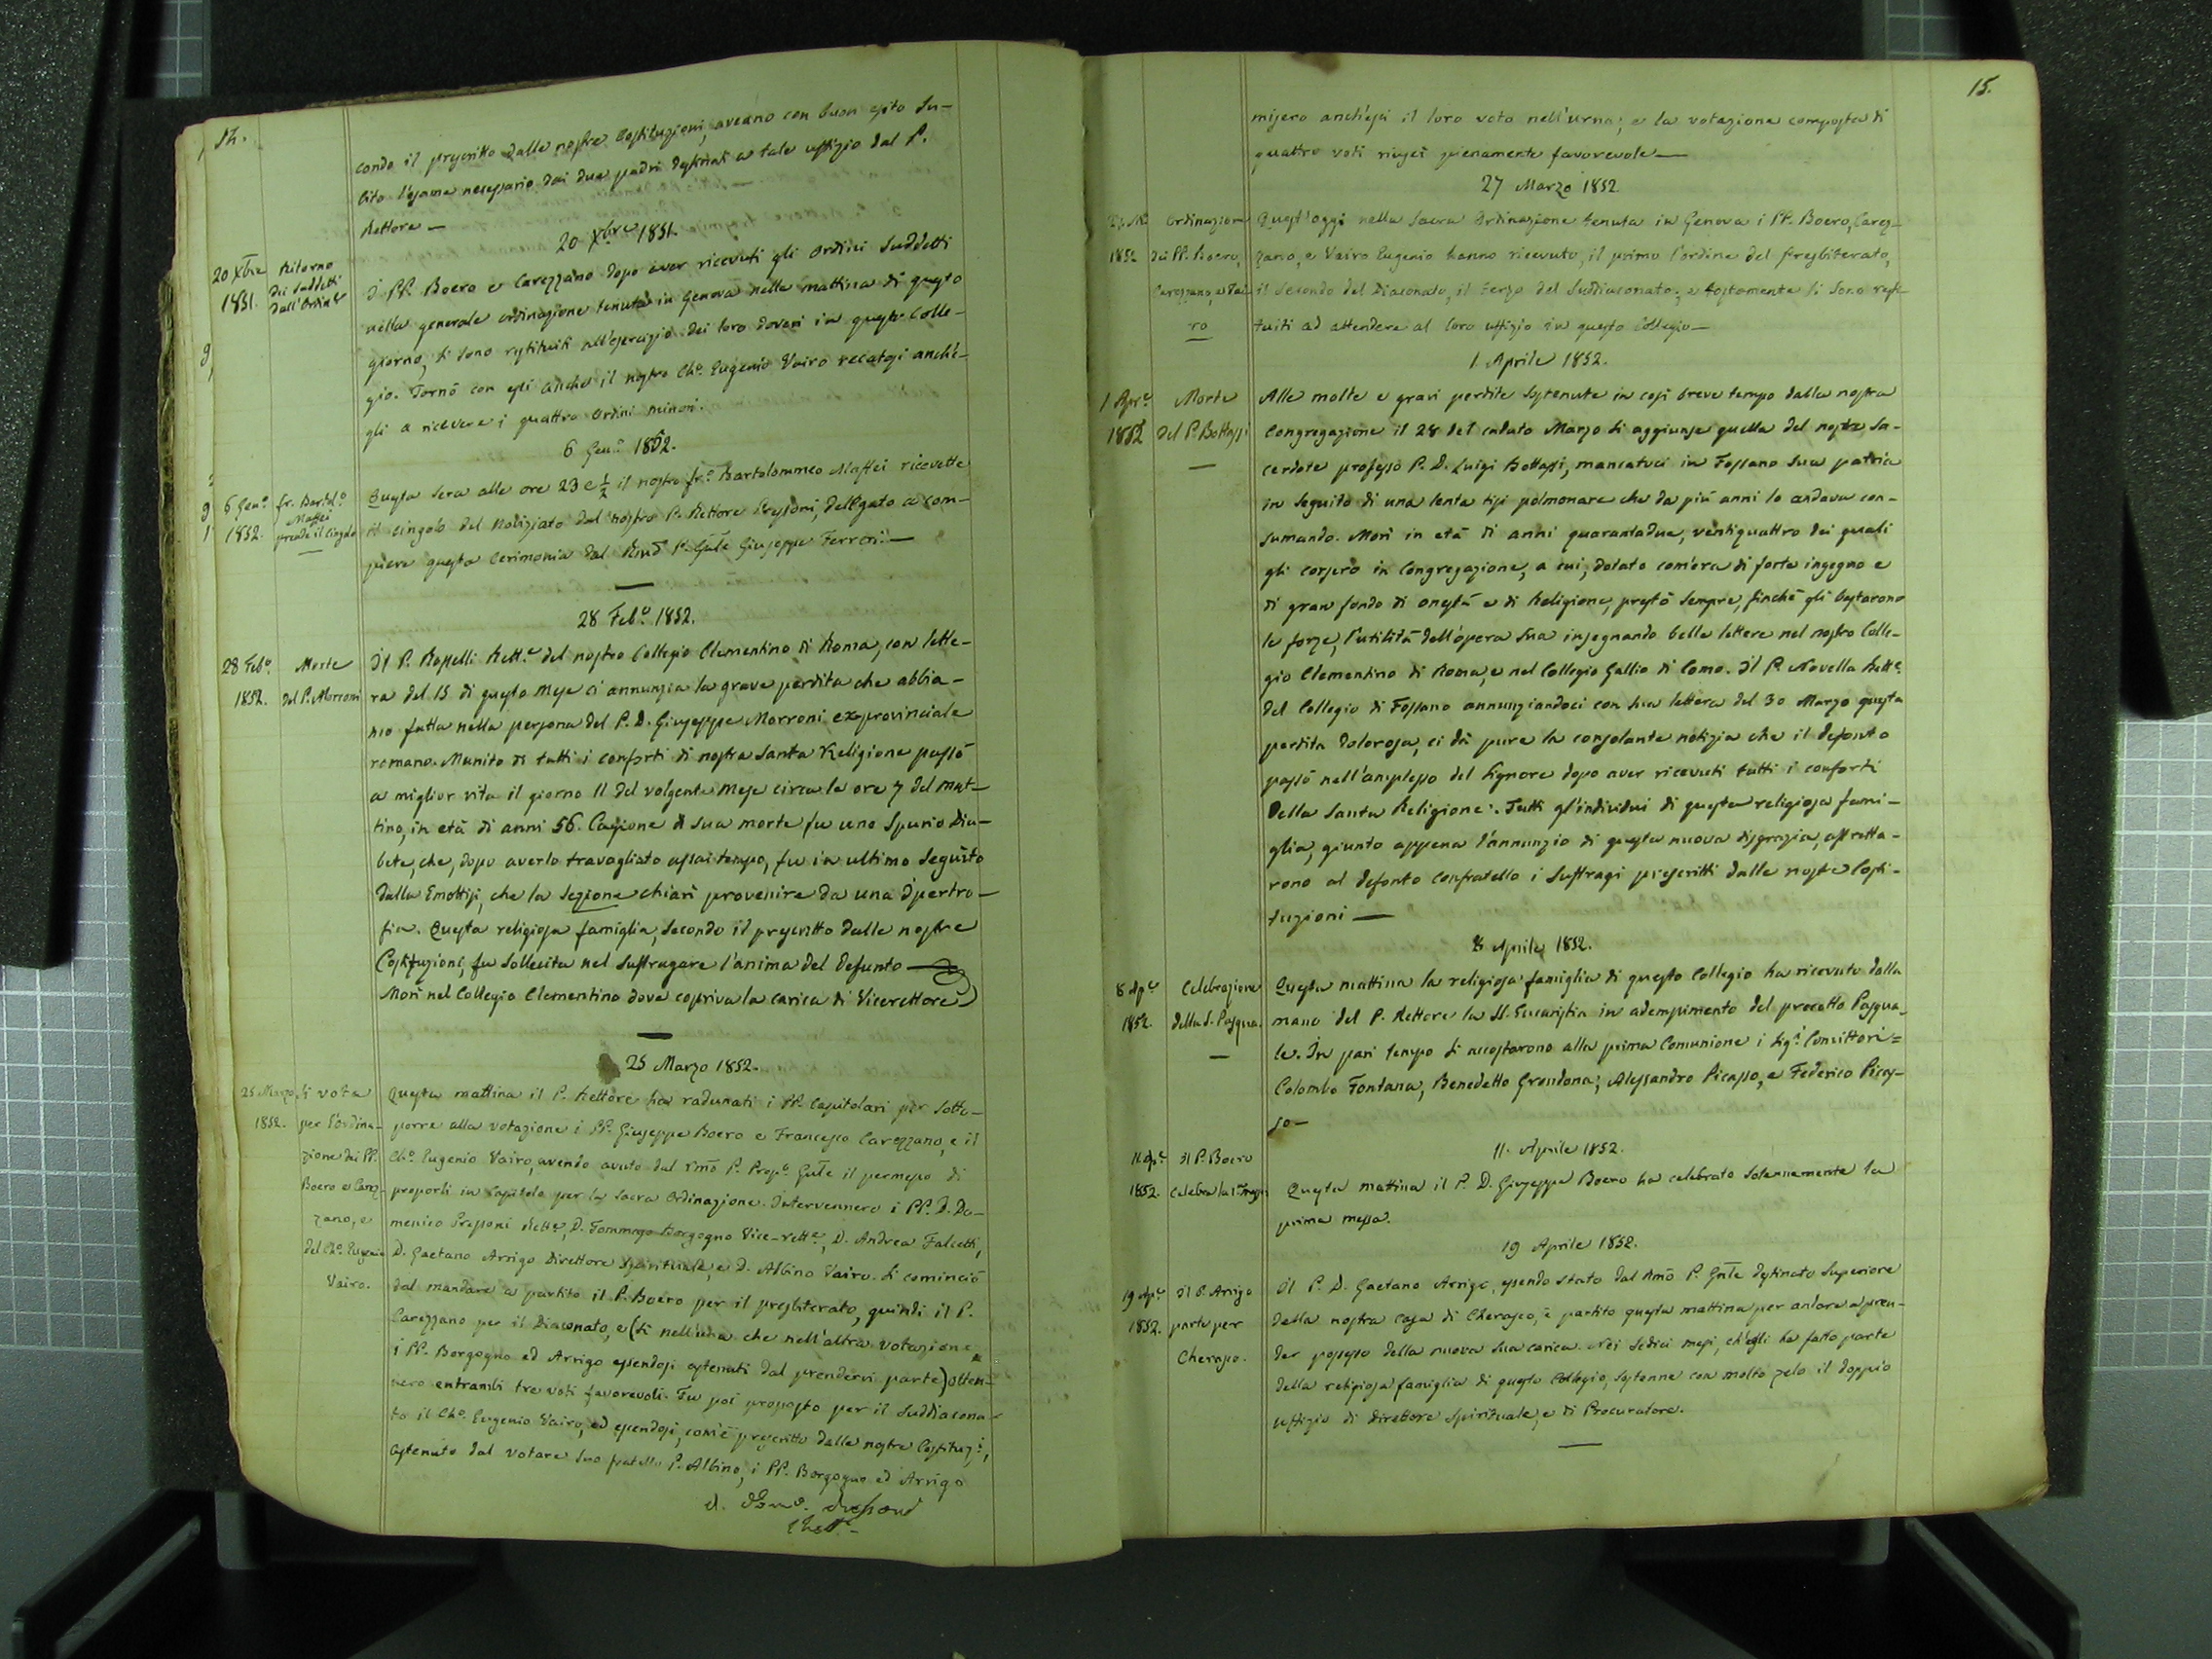 14.
condo il prescritto dalle nostre Costituzioni, aveano con buon esito su-
bito l'esame necessario dai due padri destinati a tale uffizio dal P.
Rettore —
20 Xbre 1851.
20 Xbre 1851. Ritorno dei suddetti dall'Ordin.e
I PP. Boero e Carezzano dopo aver ricevuti gli Ordini suddetti
nella generale ordinazione tenuta in Genova nella mattina di questo
giorno, si sono restituiti all'esercizio dei loro doveri in questo Colle-
gio. Tornò con essi anche il nostro Ch.o Eugenio Vairo recatosi anch'e-
gli a ricevere i quattro Ordini minori.
6 Gen.o 1852.
6 Gen.o 1852. fr. Bartol.o Maffei prende il Cingolo
Questa sera alle ore 23 e ½ il nostro fr.o Bartolommeo Maffei ricevette
il cingolo del Noviziato dal nostro P. Rettore Pressoni, delegato a com-
piere questa cerimonia dal Rmo P. Gnle Giuseppe Ferreri. —
28 Feb.o 1852.
28 Feb.o 1852. Morte del P. Morroni
Il P. Rosselli Rett.e del nostro Collegio Clementino di Roma, con lette-
ra del 15 di questo mese ci annunzia la grave perdita che abbia-
mo fatta nella persona del P. D. Giuseppe Morroni exprovinciale
romano. Munito di tutti i conforti di nostra santa Religione passò
a miglior vita il giorno 11 del volgente mese circa le ore 7 del mat-
tino, in età di anni 56. Cagione di sua morte fu uno spurio Dia-
bete, che, dopo averlo travagliato assai tempo, fu in ultimo seguito
dalla Emottisi, che la sezione chiarì provenire da una ipertro-
fia. Questa religiosa famiglia, secondo il prescritto dalle nostre
Costituzioni, fu sollecita nel suffragare l'anima del defunto
Morì nel Collegio Clementino dove copriva la carica di Vicerettore
25 Marzo 1852.
25 Marzo 1852. Si vota per l'ordinazione dei PP. Boero e Carezzano, e del Ch.o Eugenio Vairo.
Questa mattina il P. Rettore ha radunati i PP. Capitolari per sotto-
porre alla votazione i PP. Giuseppe Boero e Francesco Carezzano, e il
Ch.o Eugenio Vairo, avendo avuto dal rmo P. Prep.o Gnle il permesso di
proporli in Capitolo per la sacra Ordinazione. Intervennero i PP. D. Do-
menico Pressoni Rett.e, D. Tommaso Borgogno Vice-rett.e, D. Andrea Falcetti,
D. Gaetano Arrigo Direttore Spirituale, e D. Albino Vairo. Si cominciò
dal mandare a partito il P. Boero per il presbiterato, quindi il P.
Carezzano per il Diaconato, e (sì nell'una che nell'altra votazione
i PP. Borgogno ed Arrigo essendosi astenuti dal prendervi parte) otten-
nero entrambi tre voti favorevoli. Fu poi proposto per il Suddiacona-
to il Ch.o Eugenio Vairo, ed essendosi, com'è prescritto dalle nostre Costituz.i,
astenuto dal votare suo fratello P. Albino, i PP. Borgogno ed Arrigo
D. Dom.o Pressoni
Rett.e
15.
misero anch'essi il loro voto nell'urna; e la votazione composta di
quattro voti riuscì pienamente favorevole —
27 Marzo 1852.
1852 Ordinazione dei PP. Boero, Carezzano, e Vairo
Quest'oggi nella sacra Ordinazione tenuta in Genova i PP. Boero, Carez-
zano, e Vairo Eugenio hanno ricevuto, il primo l'ordine del Presbiterato,
il secondo del Diaconato, il terzo del Suddiaconato; e tostamente si sono resti-
tuiti ad attendere al loro uffizio in questo Collegio —
1 Aprile 1852.
1 Apr.e 1852 Morte del P. Bottassi
Alle molte e gravi perdite sostenute in così breve tempo dalla nostra
Congregazione il 28 del caduto Marzo si aggiunse quella del nostro sa-
cerdote professo P. D. Luigi Bottassi, mancatoci in Fossano sua patria
in seguito di una lenta tisi polmonare che da più anni lo andava con-
sumando. Morì in età di anni quarantadue, ventiquattro dei quali
gli corsero in Congregazione, a cui, dotato com'era di forte ingegno e
di gran fondo di onestà e di Religione, prestò sempre, finchè gli bastarono
le forze, l'utilità dell'opera sua insegnando belle lettere nel nostro Colle-
gio Clementino di Roma, e nel Collegio Gallio di Como. Il P. Novella Rett.e
del Collegio di Fossano annunziandoci con sua lettera del 30 Marzo questa
perdita dolorosa, ci dà pure la consolante notizia che il defonto
passò nell'amplesso del Signore dopo aver ricevuti tutti i conforti
della santa Religione. Tutti gl'individui di questa religiosa fami-
glia, giunto appena l'annunzio di questa nuova disgrazia, affretta-
rono al defonto confratello i suffragi prescritti dalle nostre Costi-
tuzioni —
8 Aprile 1852.
8 Ap.e 1852. Celebrazione della S. Pasqua.
Questa mattina la religiosa famiglia di questo Collegio ha ricevuto dalla
mano del P. Rettore la SS. Eucaristia in adempimento del precetto Pasqua-
le. In pari tempo si accostarono alla prima Comunione i Sig.i Convittori =
Colombo Fontana, Benedetto Grondona, Alessandro Picasso, e Federico Picas-
so —
11. Aprile 1852.
11 Ap.e 1852. Il P. Boero celebra la 1a Messa
Questa mattina il P. D. Giuseppe Boero ha celebrato solennemente la
prima messa.
19 Aprile 1852.
19 Ap.e 1852. Il P. Arrigo parte per Cherasco.
Il P. D. Gaetano Arrigo, essendo stato dal Rmo P. Gnle destinato Superiore
della nostra casa di Cherasco, è partito questa mattina per andare a pren-
der possesso della nuova sua carica. Nei sedici mesi, ch'egli ha fatto parte
della religiosa famiglia di questo Collegio, sostenne con molto zelo il doppio
uffizio di Direttore Spirituale, e di Procuratore.